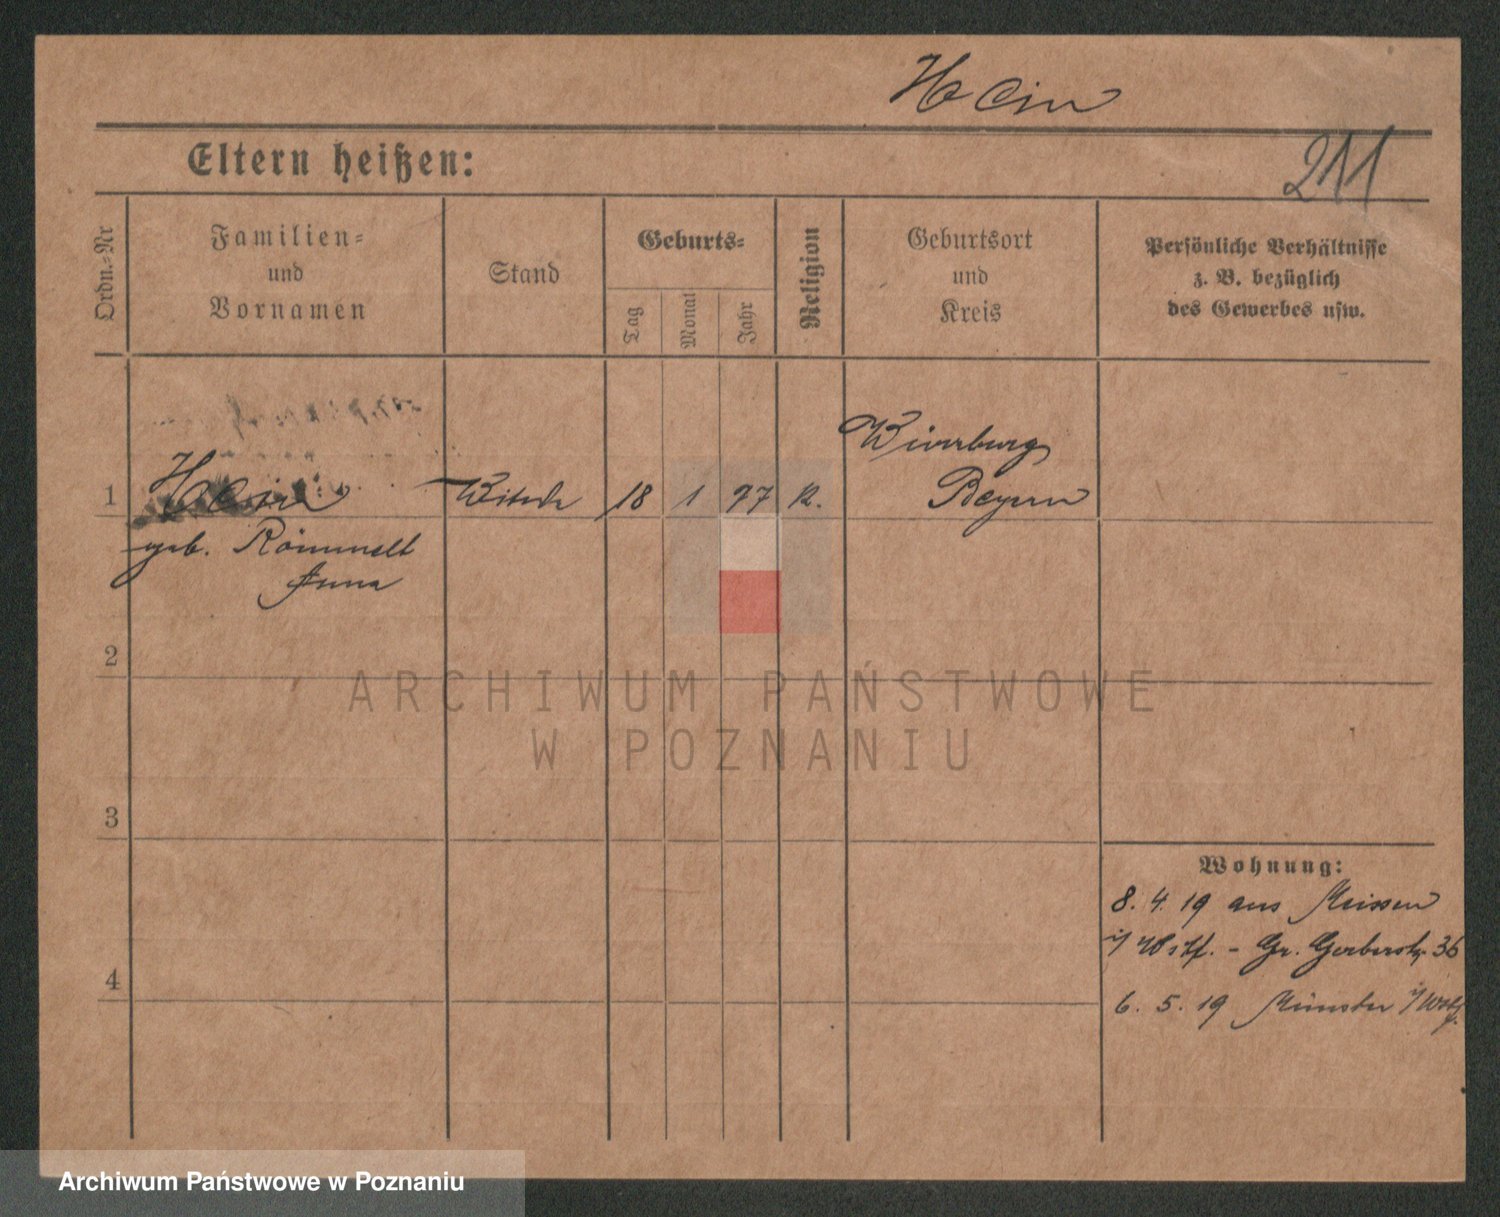 Hein
211
Eltern heißen:
Ordn.-Nr
Familien-
und
Vornamen
Stand
Geburts-
Tag
Monat
Jahr
Religion
Geburtsort
und
Kreis
Persönliche Verhältnisse
z. B. bezüglich
des Gewerbes usw.
1
Hein
geb. Römmelt
Anna
18 1 77 K.
Bayern
2
ARCHIWUM PAŃSTWOWE
W POZNANIU
3
Wohnung:
8. 4. 19 aus Meissen
i/ Wstf. - Gr. Gerberstr. 36
4
6. 5. 19 Münster i/Wstf.
Archiwum Państwowe w Poznaniu